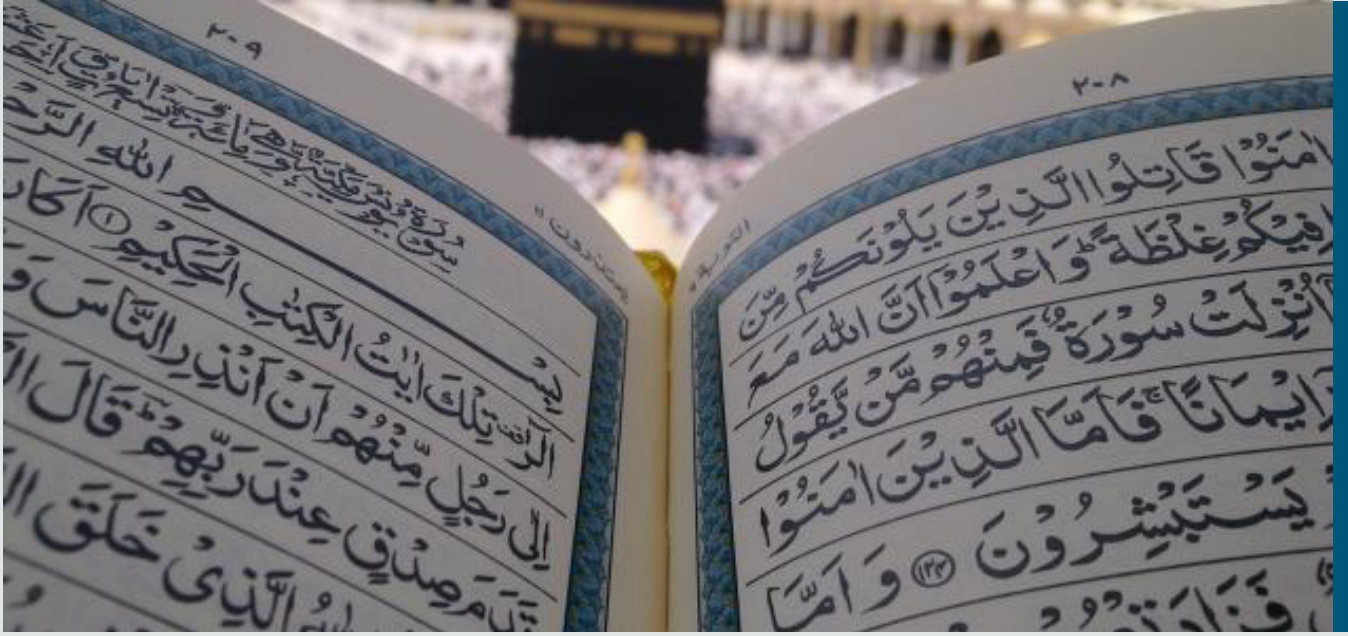 ٢٠٨
التوبة ٩
اٰمَنُوْا قَاتِلُوا الَّذِيْنَ يَلُوْنَكُمْ مِّنَ
فِيْكُمْ غِلْظَةً ؕ وَاعْلَمُوْۤا اَنَّ اللّٰهَ مَعَ
اُنْزِلَتْ سُوْرَةٌ فَمِنْهُمْ مَّنْ يَّقُوْلُ
اِيْمَانًا ۚ فَاَمَّا الَّذِيْنَ اٰمَنُوْا
يَسْتَبْشِرُوْنَ ﴿١٢٤﴾ وَاَمَّا
فَزَادَتْهُمْ
٢٠٩
يعتذرون ١١
سُوْرَةُ يُوْنُسَ مَكِّيَّةٌ
بِسْمِ اللّٰهِ
الٓرٰ تِلْكَ اٰيٰتُ الْكِتٰبِ الْحَكِيْمِ ﴿١﴾ اَكَانَ
اِلٰى رَجُلٍ مِّنْهُمْ اَنْ اَنْذِرِ النَّاسَ وَ
قَدَمَ صِدْقٍ عِنْدَ رَبِّهِمْ ؕ قَالَ
اللّٰهُ الَّذِيْ خَلَقَ